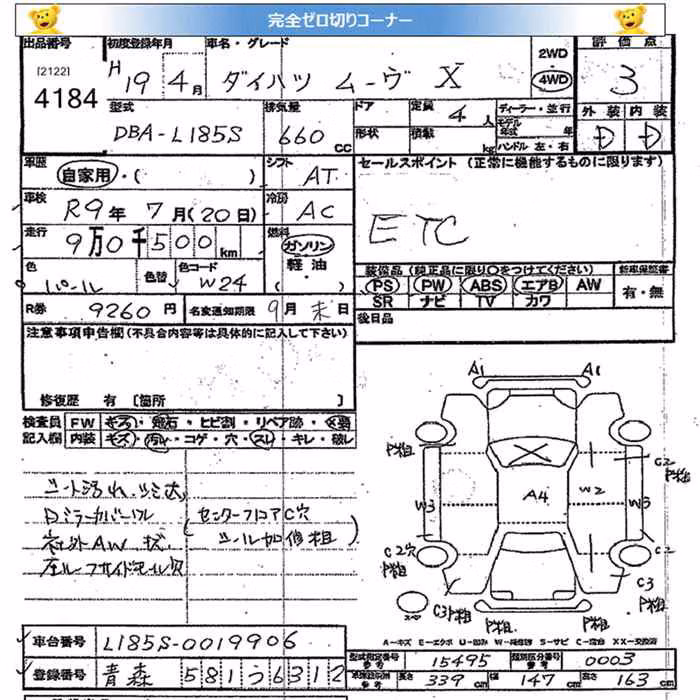 完全ゼロ切りコーナー
出品番号 初度登録年月 車名・グレード 2WD 評価点
[2122] H 19 4月 ダイハツ ムーヴ X 4WD 3
4184
型式 排気量 ドア 定員 4人 ディーラー・並行 外装 内装
DBA-L185S 660 CC 形状 積載 kg モデル年式 年 D D
ハンドル 左・右
車歴 シフト セールスポイント (正常に機能するものに限ります)
自家用・( ) AT
車検 冷房
R9年 7月(20日) AC ETC
走行 燃料
9万0千500km ガソリン
色 色替 色コード 軽油・ 装備品 (純正品に限り○をつけてください) 新車保証書
パール W24 ( ) PS PW ABS エアB AW 有・無
SR ナビ TV カワ
R券 9260円 名変通知期限 9月末日 後日品
注意事項申告欄(不具合内容等は具体的に記入して下さい)
修復歴 有 [箇所
検査員 FW キズ・飛石・ヒビ割・リペア跡・
記入欄 内装 キズ・汚れ・コゲ・穴・スレ・キレ・破レ
A1 A1
P粗 C2 P粗
シート汚れ、
A4 W2 W3 W3
センターフロアC穴
社外AW
C2穴 P粗 C2
C3 P粗 C3 P粗 P粗
A-キズ E-エクボ U-凹み W-補修跡 S-サビ C-腐食 XX-交換済
車台番号 L185S-0019906
型式指定番号 参考 15495 類別区分番号 参考 0003
登録番号 青森 581う6312
長さ 339 cm 幅 147 cm 高さ 163 cm